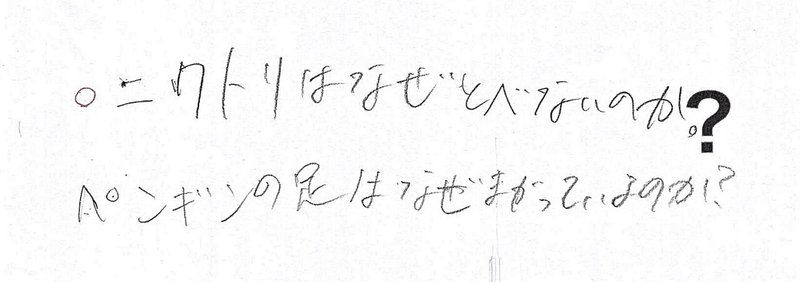 ○ニワトリはなぜとべないのか?
ペンギンの足はなぜまがっているのか?